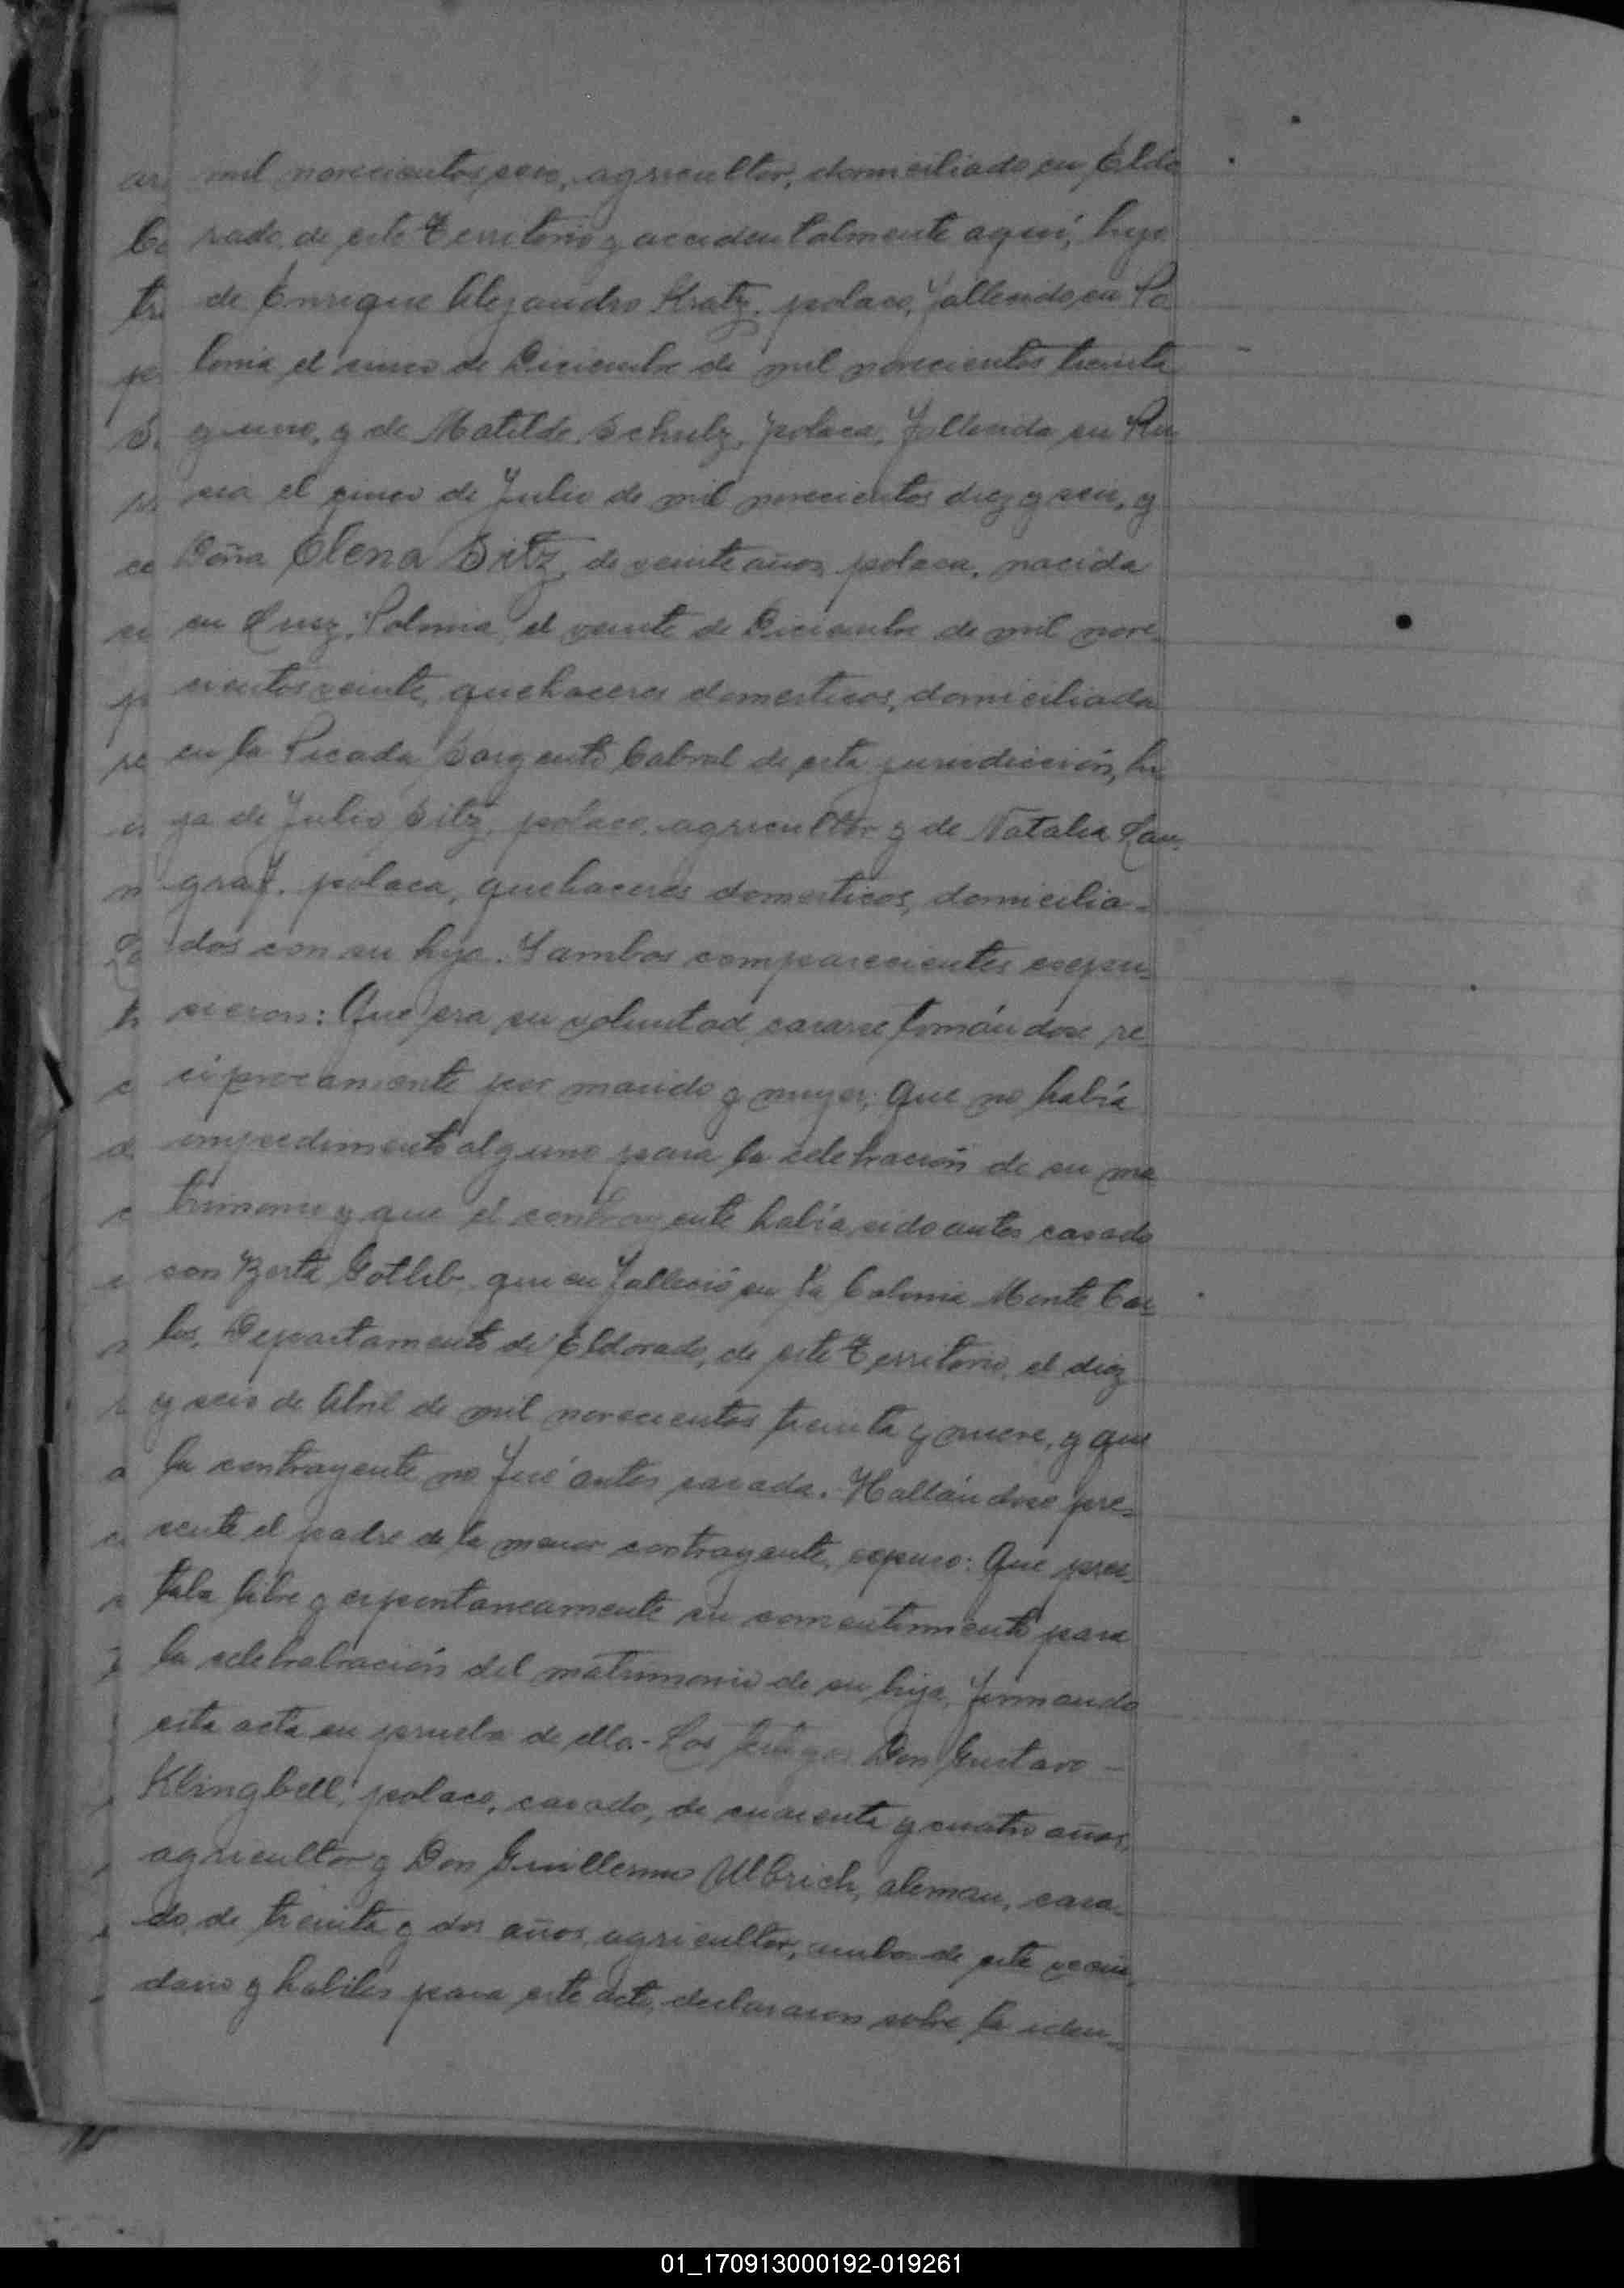 mil novecientos seis, agricultor, domiciliado en Eldo
rado, de este Territorio y accidentalmente aquí, hijo
de Enrique Alejandro Kratz, polaco, fallecido en Po
lonia el cinco de Diciembre de mil novecientos treinta
y uno, y de Matilde Schulz, polaca, fallecida en Ru
sia el cinco de Julio de mil novecientos diez y seis, y
Doña Elena Sitz, de veinte años, polaca, nacida
en Polonia, el veinte de Diciembre de mil nove-
cientos veinte, quehaceres domesticos, domiciliada
en la Picada Sargento Cabral de esta jurisdicción, hi
ja de Julio Sitz, polaco, agricultor y de Natalia Lan-
graf, polaca, quehaceres domesticos, domicilia-
dos con su hija. Y ambos comparecientes expu-
sieron: Que era su voluntad casarse tomándose re
ciprocamente por marido y mujer; Que no había
impedimento alguno para la celebración de su ma
trimonio y que el contrayente había sido antes casado
con Berta Gotlib, quien falleció en la Colonia Monte Car-
los, Departamento de Eldorado, de este Territorio, el diez
y seis de Abril de mil novecientos treinta y nueve, y que
la contrayente no fué antes casada. Hallándose pre-
sente el padre de la menor contrayente, expuso: Que pres-
taba libre y espontaneamente su consentimiento para
la celebrabración del matrimonio de su hija, firmando
esta acta en prueba de ello.- Los testigos Don Gustavo -
Klingbell, polaco, casado, de cuarenta y cuatro años,
agricultor y Don Guillermo Ulbrich, aleman, casa-
do, de treinta y dos años, agricultor, ambos de este vecin-
dario y habiles para este acto, declararon sobre la iden-
01_170913000192-019261